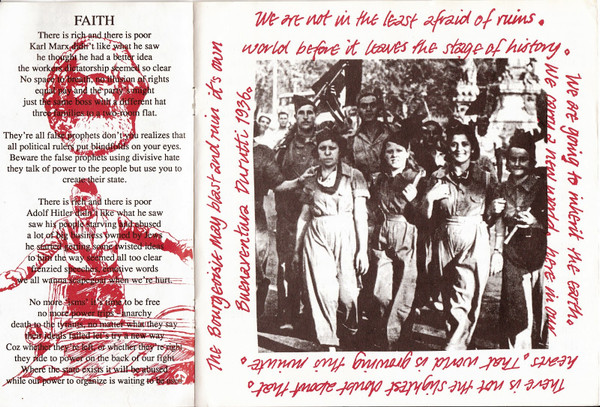 FAITH
There is rich and there is poor
Karl Marx didn't like what he saw
he thought he had a better idea
the workers dictatorship seemed so clear
No space to breath, no illusion of rights
equal pay and the party's might
just the same boss with a different hat
three families to a two-room flat.
They're all false prophets don't you realizes that
all political rulers put blindfolds on your eyes.
Beware the false prophets using divisive hate
they talk of power to the people but use you to
create their state.
There is rich and there is poor
Adolf Hitler didn't like what he saw
saw his people starving and abused
a lot of big business owned by Jews
he started getting some twisted ideas
to him the way seemed all too clear
frenzied speeches, emotive words
we all wanna scapegoat when we're hurt.
No more "isms" it's time to be free
no more power trips - anarchy
death to the tyrants, no matter what they say
their ideals failed let's try a new way
Coz whether they're left, or whether they're right
they ride to power on the back of our fight
Where the state exists it will be abused
while our power to organize is waiting to be
We are not in the least afraid of ruins.
We are going to inherit the earth.
There is not the slightest doubt about that.
The Bourgeoisie may blast and ruin it's own
world before it leaves the stage of history.
We carry a new world, here in our
hearts. That world is growing this minute.
Buenaventura Durutti 1936.